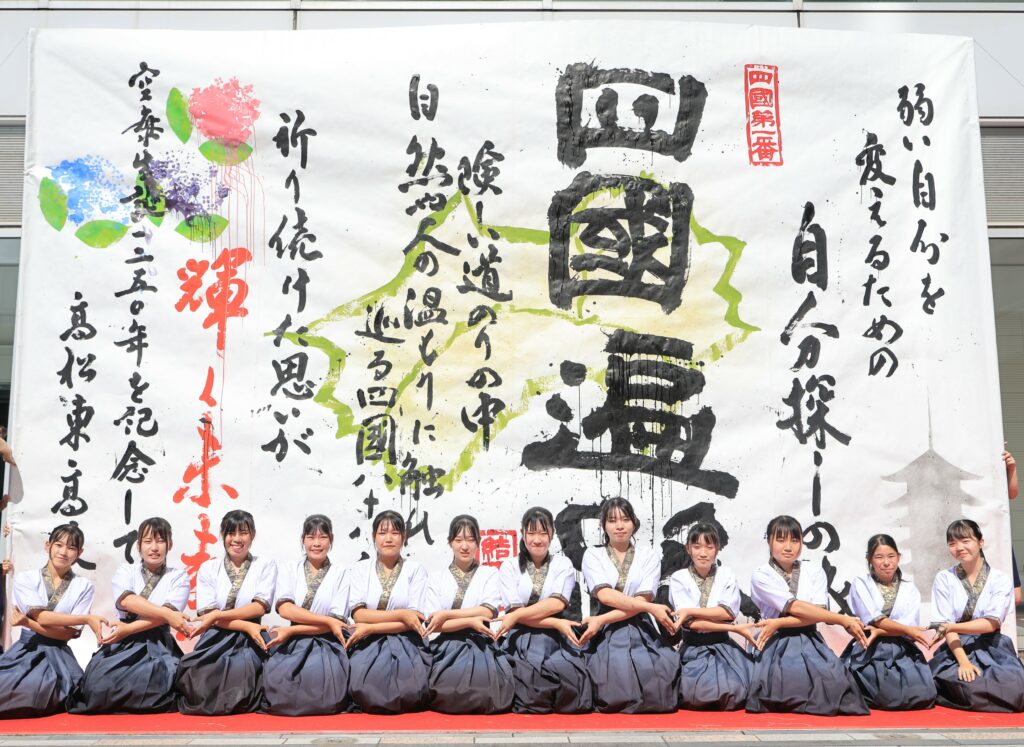 弱い自分を
変えるための
自分探しの
四國第一番
四國遍
険しい道のりの中
自然や人の温もりに触れ
巡る四國八十
祈り続けた思いが
輝く未
空海生誕一二五〇年を記念して
高松東高
結